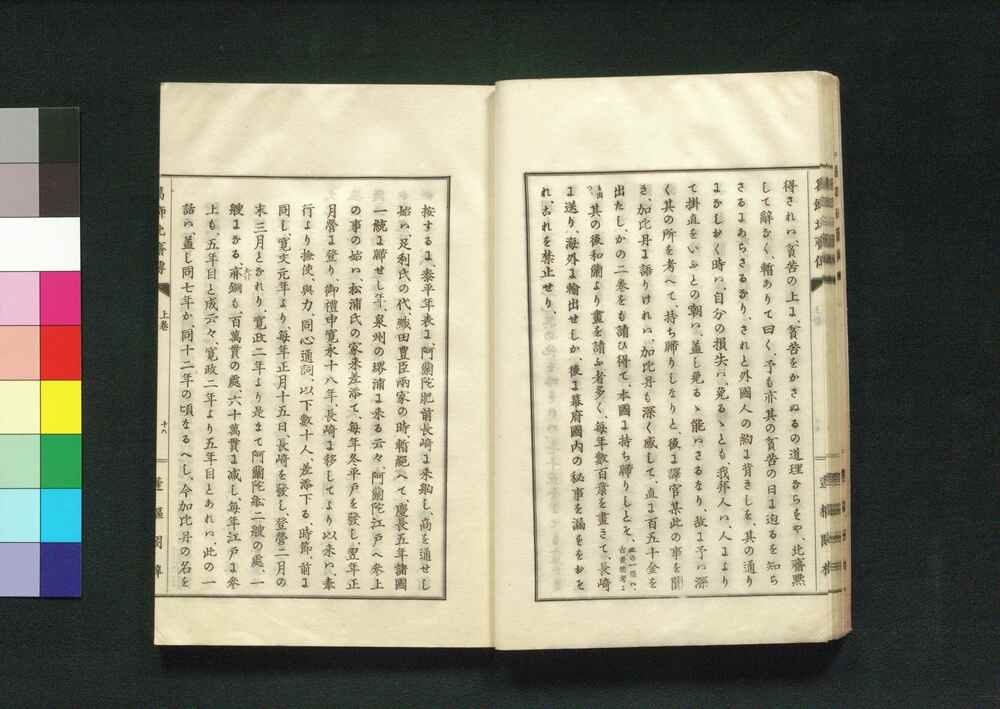 得されバ、貧苦の上ょ、貧苦をかさぬるの道理ならをや、北齋黙
して辭なく、稍ありて曰く、予も亦其の貧苦の日ょ迫るを知ら
さるょあらさるなり、されと外國人の約ょ背きしを、其の通り
ょかしおく時ハ、自分の損失ハ、免るゝとも、我邦人ハ、人ょより
て掛直をいふとの嘲ハ、蓋し免るゝ能ハさるなり、故ょ予ハ深
く其の所を考へて、持ち歸りしなりと、後ょ譯官某此の事を聞
き、加比丹ょ語りけれハ、加比丹も深く感して、直ょ百五十金を
出たし、かの二巻をも請ひ得て、本國ょ持ち歸りしとそ、
其の後和蘭より畫を請ふ者多く、毎年數百葉を畫きて、長崎
ょ送り、海外ょ輸出せしか、後ょ幕府國内の秘事を漏をゝおを
れ、おれを禁止せり、
按するょ、泰平年表ょ、阿蘭陀肥前長崎ょ來舶し、商を通せし
始ハ、足利氏の代、織田豊臣兩家の時暫絕へて慶長五年諸國
一統ょ歸せし年、泉州の堺浦ょ來る云々、阿蘭陀江戸へ參上
の事の始ハ、松浦氏の家來差添て、毎年冬平戸を發し、翌年正
月營ょ登り、御禮申、寛永十八年、長崎ょ移してより以來ハ、奉
行より撿使、與力、同心、通詞、以下數十人、差添下る、時節、前ょ
同し、寛文元年より、毎年正月十五日、長崎を發し、登營二月の
末、三月とかれり、寛政二年より是まて阿蘭陀船二艘の處、一
艘ょかる、亦銅も、百萬貫の處、六十萬貫ょ减し、毎年江戸ょ參
上も、五年目と成云々、寛政二年より五年目とあれハ、此の一
話ハ、蓋し同七年か、同十二年の頃なるへし、今加比丹の名を
上巻
十八